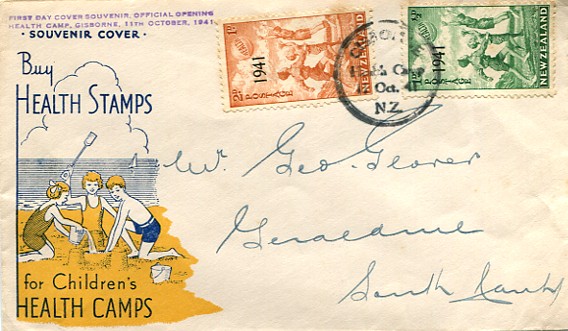 FIRST DAY COVER SOUVENIR, OFFICIAL OPENING
HEALTH CAMP, GISBORNE, 11TH OCTOBER, 1941
· SOUVENIR COVER ·
Buy
HEALTH STAMPS
for Children's
HEALTH CAMPS
1941
2D POSTAGE 1D
NEW ZEALAND
1941
POSTAGE
NEW ZEALAND
GISBORNE
Oc
N.Z.
Mr. Geo. Glover
Geraldine
South Cant